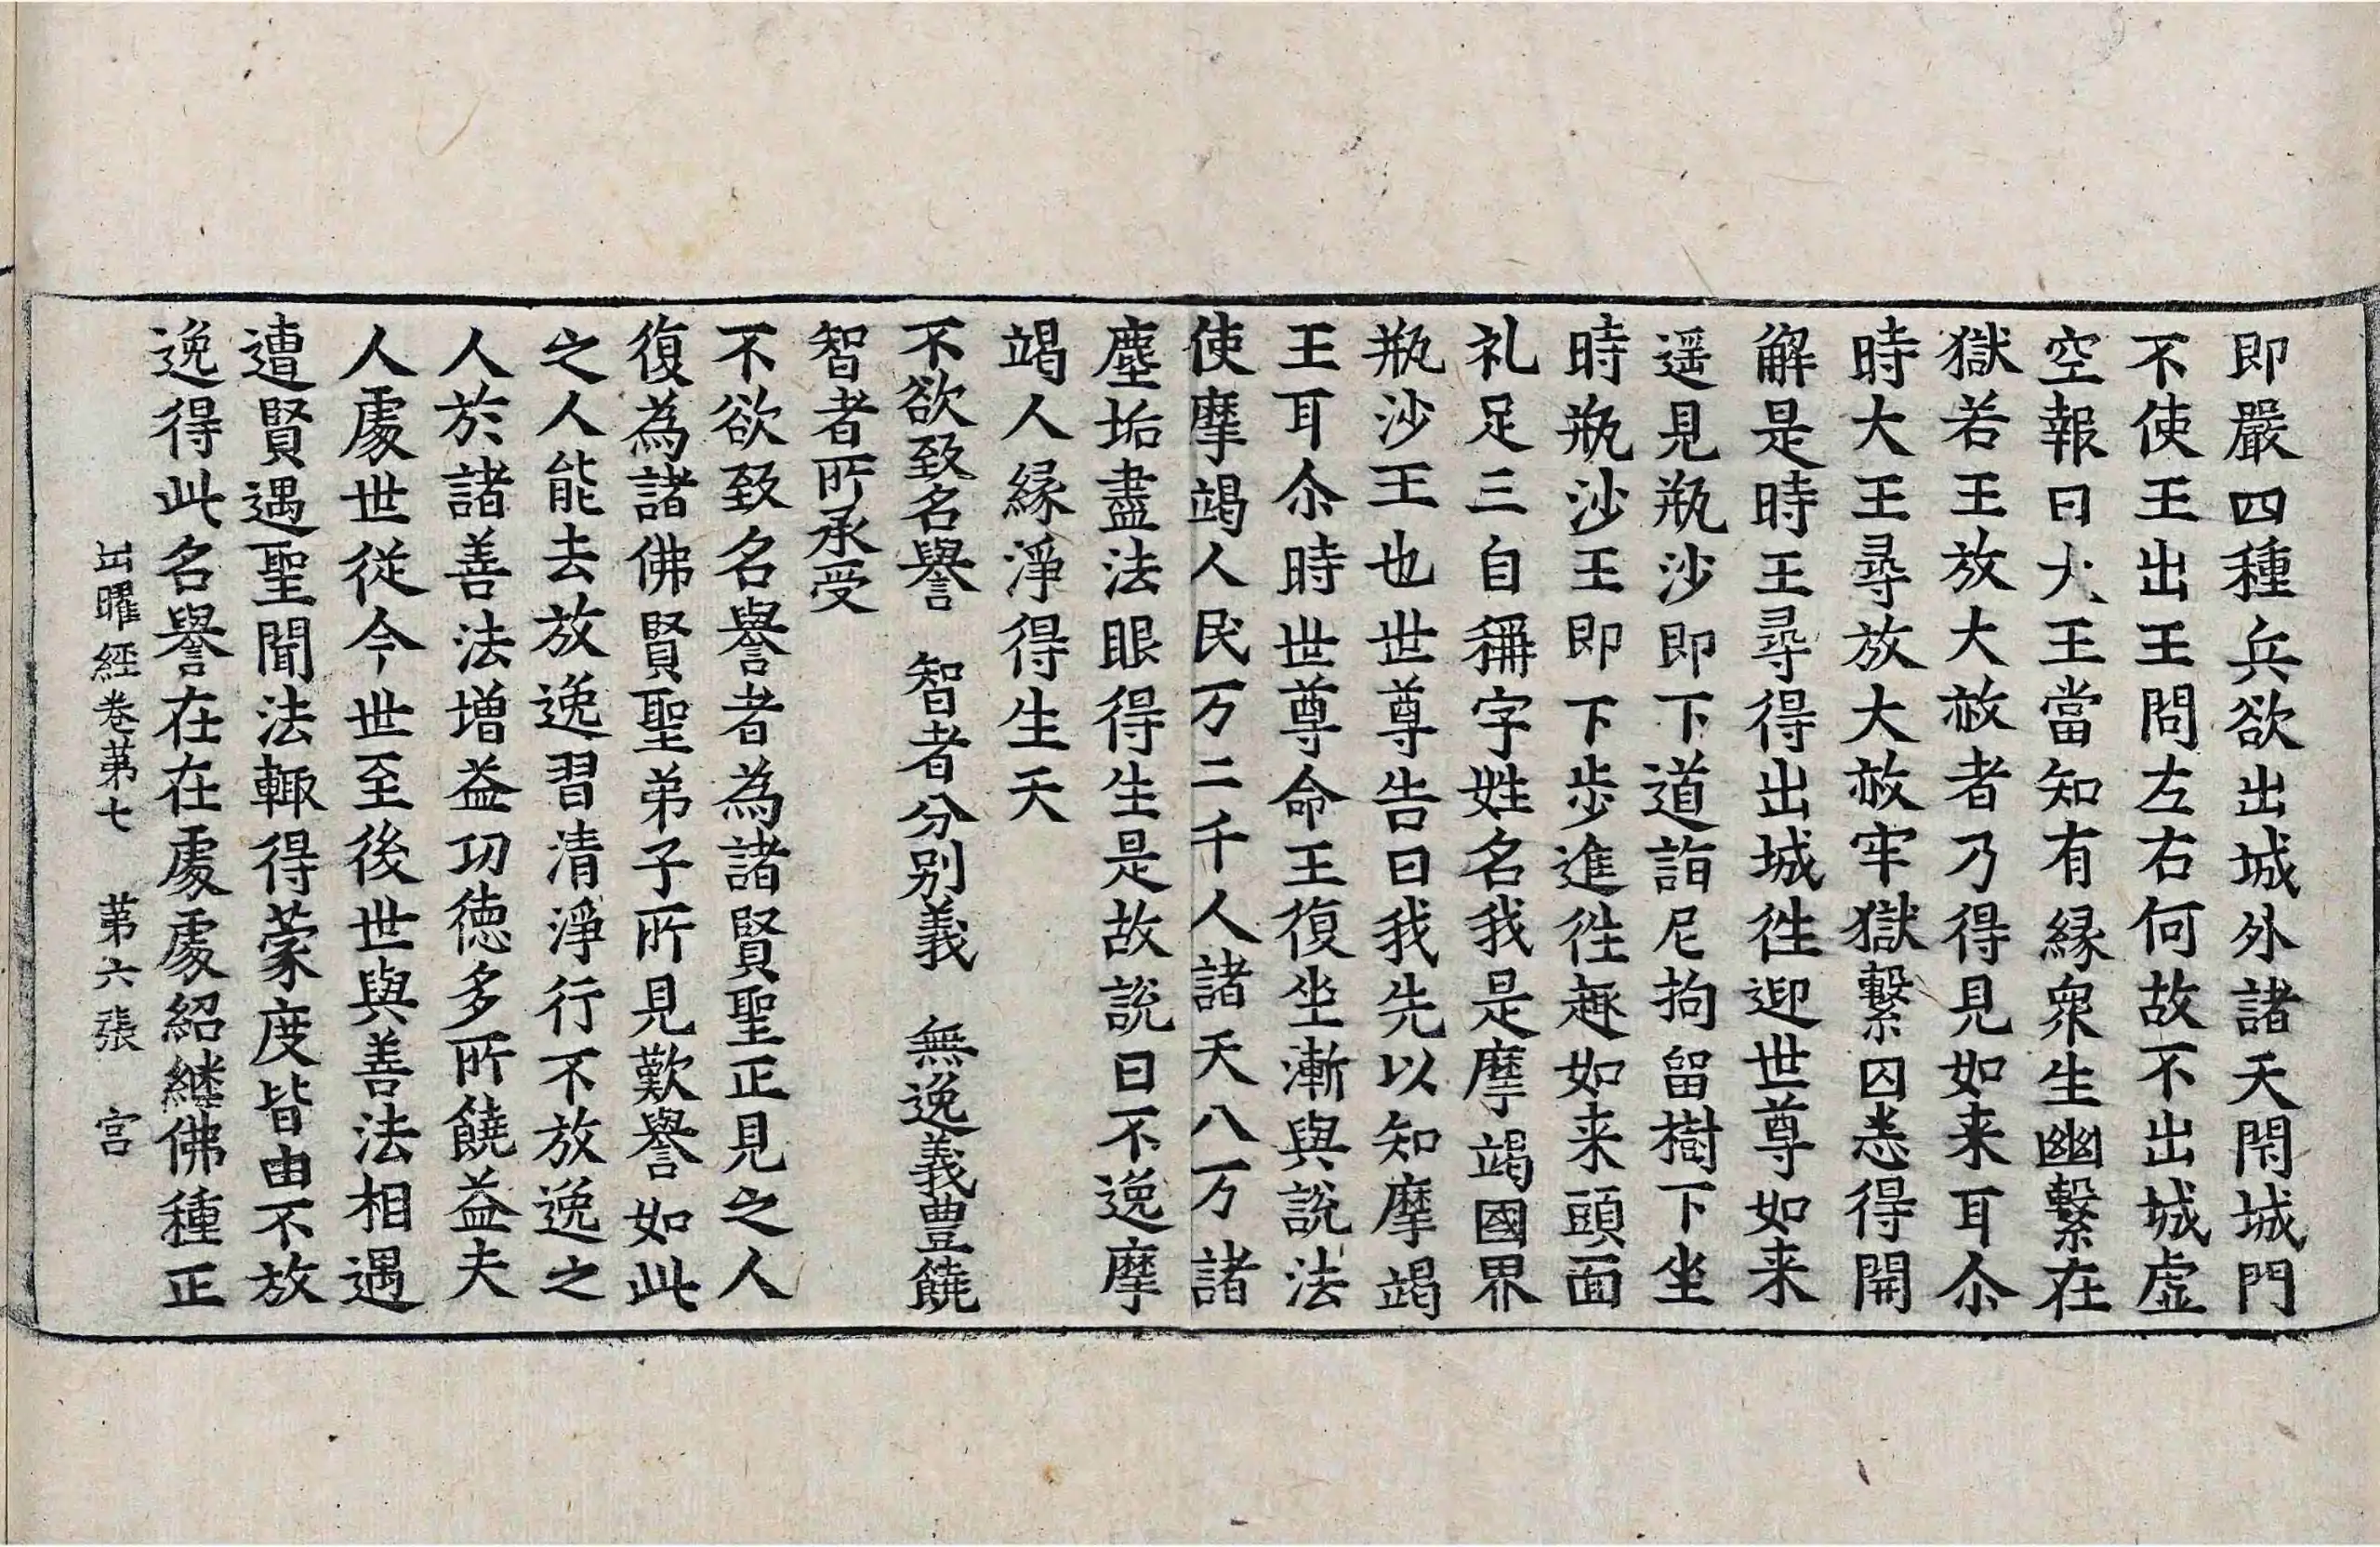 即嚴四種兵欲出城外諸天閇城門
不使王出王問左右何故不出城虛
空報曰大王當知有緣衆生幽繫在
獄若王放大赦者乃得見如来耳尒
時大王尋放大赦牢獄繫囚悉得開
解是時王尋得出城徃迎世尊如来
遥見瓶沙即下道詣尼拘留樹下坐
時瓶沙王即下步進徃趣如来頭面
礼足三自稱字姓名我是摩竭國界
瓶沙王也世尊告曰我先以知摩竭
王耳尒時世尊命王復坐漸與說法
使摩竭人民万二千人諸天八万諸
塵垢盡法眼得生是故說曰不逸摩
竭人緣淨得生天
不欲致名譽　智者分別義　無逸義豊饒
智者所承受
不欲致名譽者為諸賢聖正見之人
復為諸佛賢聖弟子所見歎譽如此
之人能去放逸習清淨行不放逸之
人於諸善法增益功德多所饒益夫
人處世從今世至後世與善法相遇
遭賢遇聖聞法輙得蒙度皆由不放
逸得此名譽在在處處紹継佛種正
出曜經卷苐七　苐六張　宫